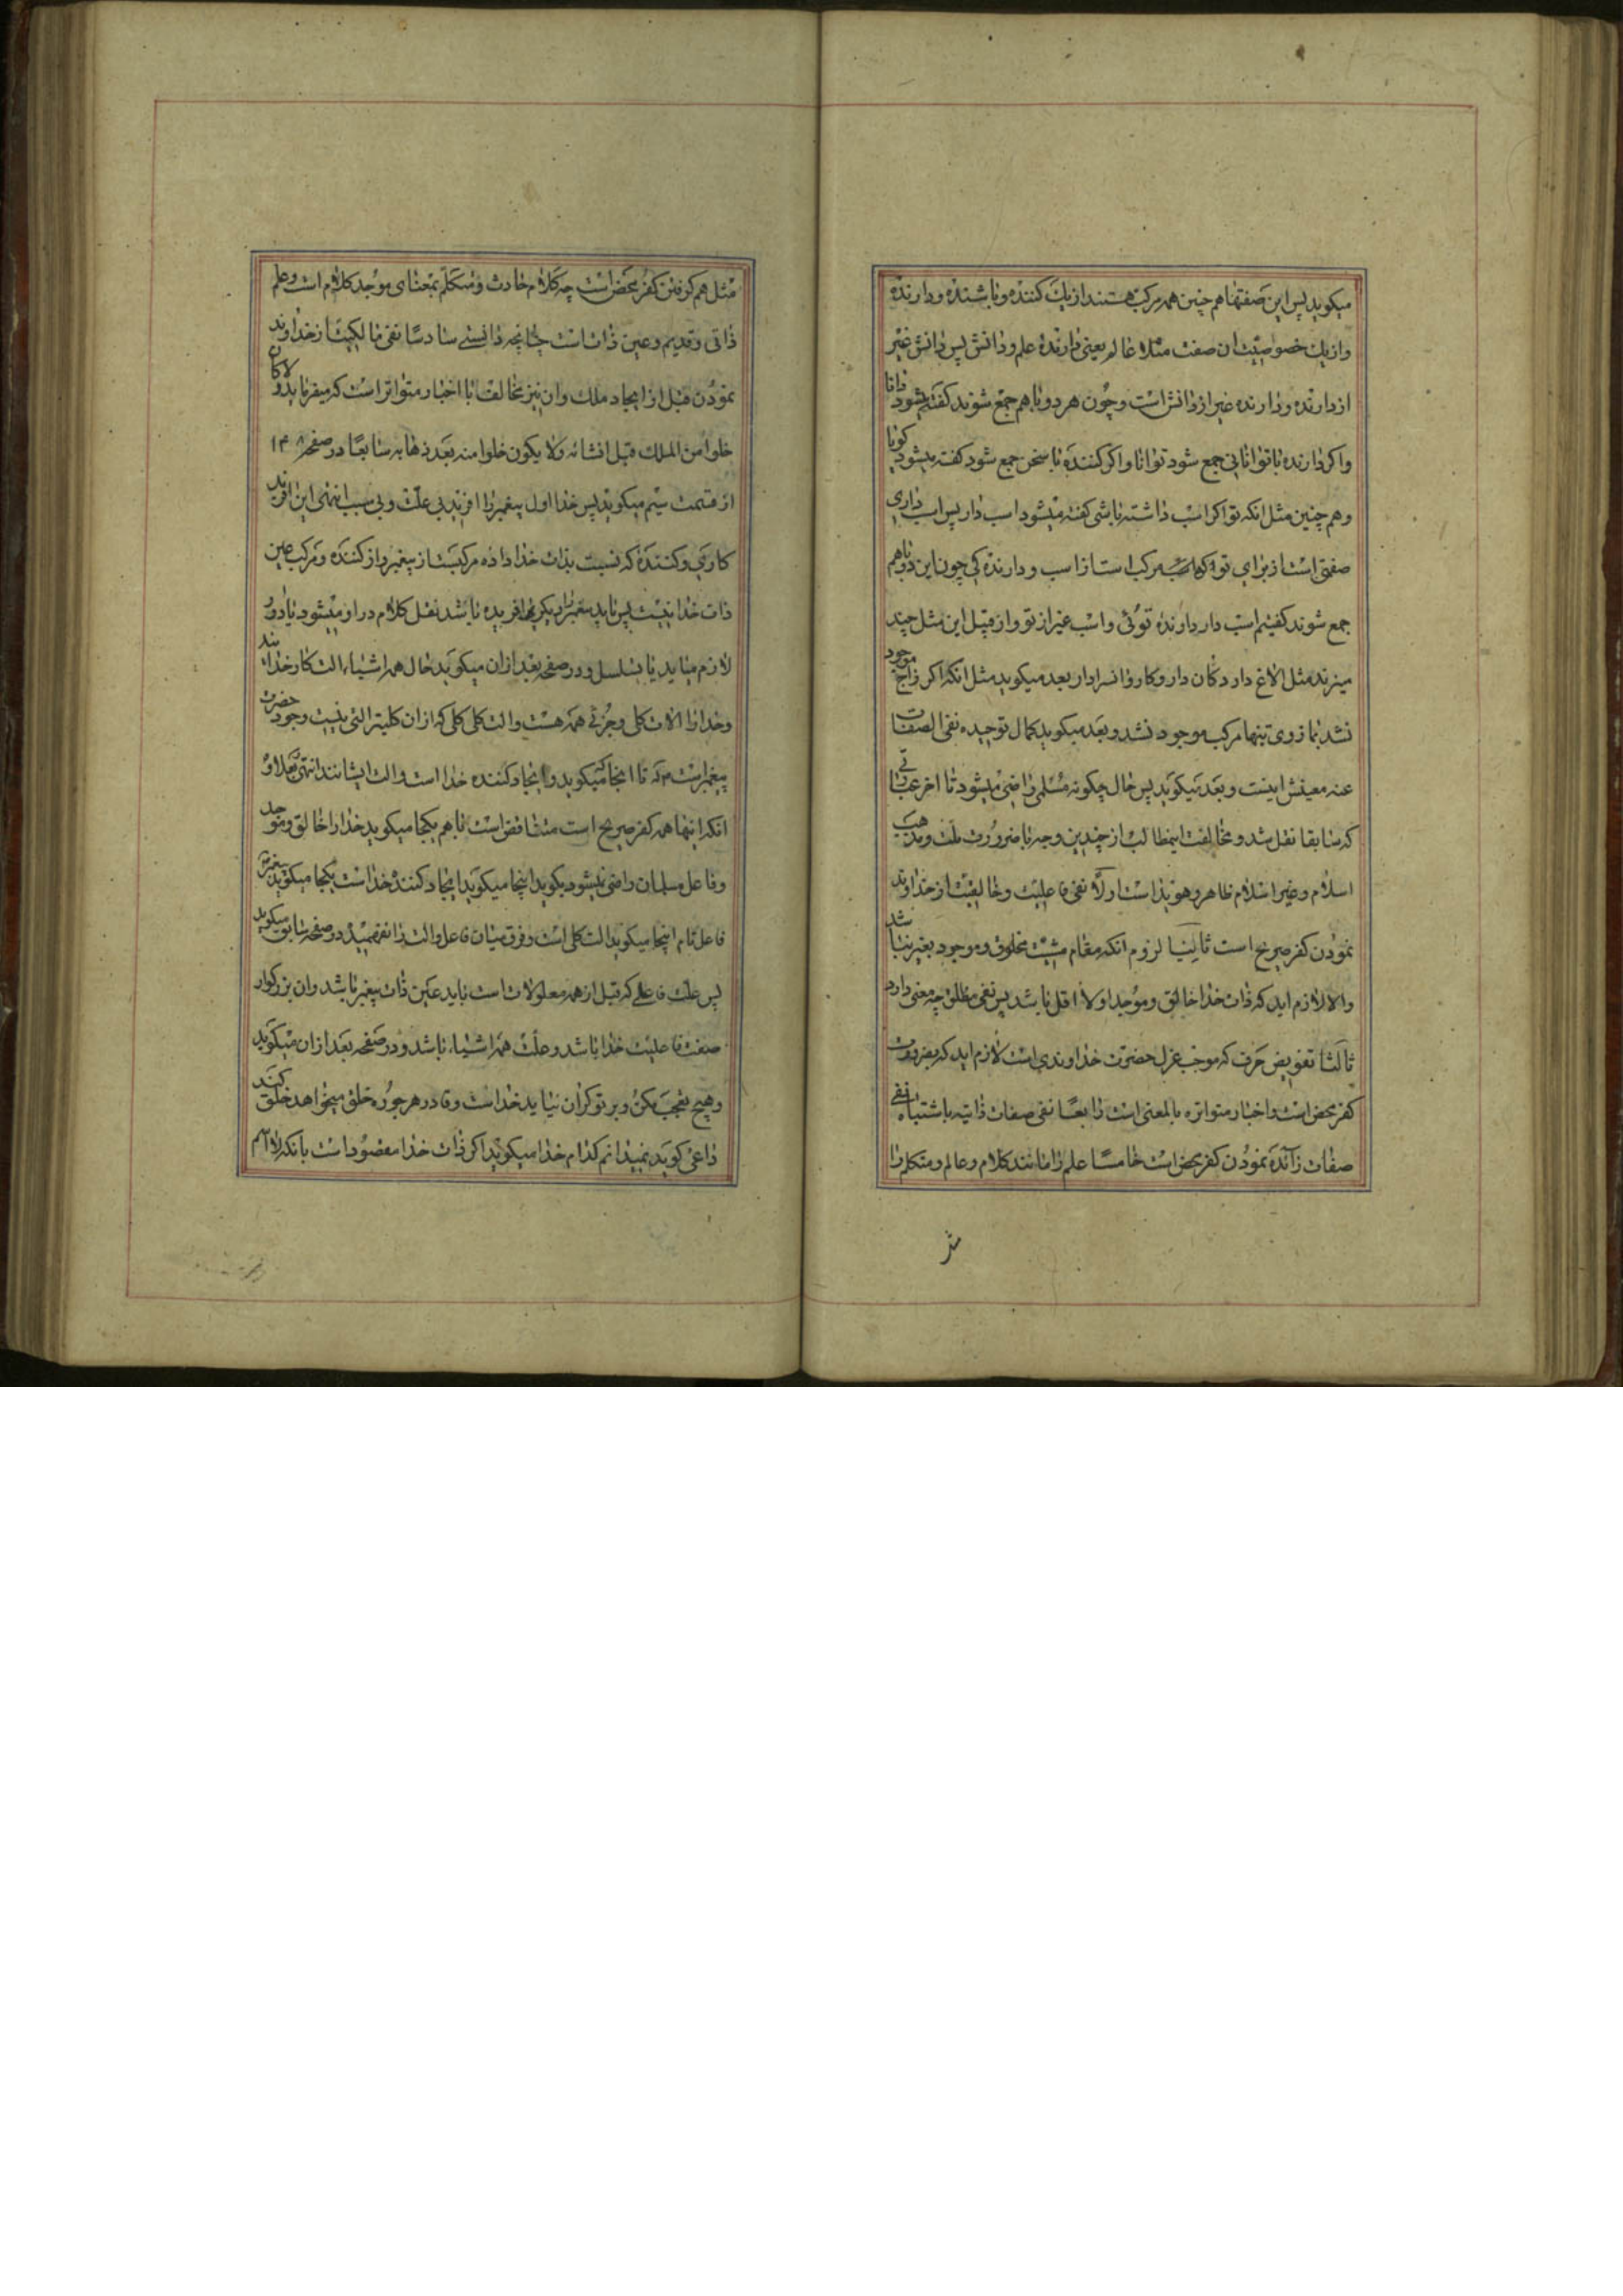 میکوید پس این صفتها هم چنین همه مرکب هستند از یک کننده و باشنده و دارنده
و از یک خصوصیت ان صفت مثلا عالم یعنی دارندهٔ علم و دانش پس دانش غیر
از دارنده و دارنده غیر از دانش است و چون هر دو با هم جمع شوند کفته میشود دانا
و اکر دارنده با توانائی جمع شود توانا و اکر کننده با سخن جمع شود کفته میشود کویا
و هم چنین مثل انکه تو اکر اسب داشته باشی کفته میشود اسب دار پس اسب داری
صفتی است از برای تو که مرکب است از اسب و دارندکی چون این دو با هم
جمع شوند کفتیم اسب دار دارنده توئی و اسب غیر از تو و از قبیل این مثل چند
میزند مثل الاغ دار دکان دار و کاروانسرا دار بعد میکوید مثل انکه اکر زاج موجود
نشد بمازوی تنها مرکب موجود نشد و بعد میکوید کمال توحیده نفی الصفات
عنه معینش اینست و بعد میکوید پس حال چکونه مسلمی راضی میشود تا اخر عباراتی
که سابقا نقل شد و مخالفت اینمطالب از چندین وجه با ضرورت ملت و مذهب
اسلام و غیر اسلام ظاهر و هویدا است اولا نفی فاعلیت و خالقیت از خداوند
نمودن کفر صریح است ثانیا لزوم انکه مقام مشیت مخلوق و موجود بغیر نباشد
والا لازم اید که ذات خدا خالق و موجد اولا اقل باشد پس نفی مطلق چه معنی دارد
ثالثا تفویض صرف که موجب عزل حضرت خداوندی است لازم اید که بضرورت
کفر محض است و اخبار متواتره بالمعنی است رابعا نفی صفات ذاتیه باشتباه نفی
صفات زائده نمودن کفر محض است خامسا علم را مانند کلام و عالم و متکلم را
مثل
مثل هم کرفتن کفر محض است چه کلام حادث و متکلم بمعنای موجد کلام است و علم
ذاتی و قدیم و عین ذات است چنانچه دانستی سادسا نفی مالکیت از خداوند
نمودن قبل از ایجاد ملک و ان نیز مخالف با اخبار متواتر است که میفرماید و لا کان
خلوا من الملک قبل انشائه و لا یکون خلوا منه بعد ذهابه سابعا در صفحه ۱۴۸
از قسمت سیم میکوید پس خدا اول پیغمبر را افرید بی علت و بی سبب انتهی این افرید
کاری و کنندهٔ که نسبت بذات خدا داده مرکبست از پیغمبر و از کننده و مرکب عین
ذات خدا نیست پس باید پیغمبر را دیکری افریده باشد نقل کلام در او میشود یا دور
لازم میاید یا تسلسل و در صفحه بعد از ان میکوید حال همه اشیاء الت کار خدایند
و خدا را الات کلی و جزئی همه هست و الت کلی کلی که از ان کلیتر التی نیست وجود حضرت
پیغمبر است که تا اینجا میکوید و ایجاد کننده خدا است و الت ایشانند انتهی علاوه
انکه اینها همه کفر صریح است متناقض است با هم یکجا میکوید خدا را خالق و موجد
و فاعل مسلمان راضی نمیشود بکوید اینجا میکوید ایجاد کننده خدا است یکجا میکوید پیغمبر
فاعل تام اینجا میکوید الت کلی است و فرق میان فاعل و الت را نفهمیده در صفحه سابق میکوید
پس علت فاعلی که قبل از همه معلولات است باید عین ذات پیغمبر باشد و ان بزرکوار
صفت فاعلیت خدا باشد و علت همه اشیاء باشد و در صفحه بعد از ان میکوید
و هیچ تعجب مکن و بر تو کران نیاید خدا است و قادر هر جوره خلق میخواهد خلق کند
داعی کوید نمیدانم کدام خدا میکوید اکر ذات خدا مقصود است با انکه